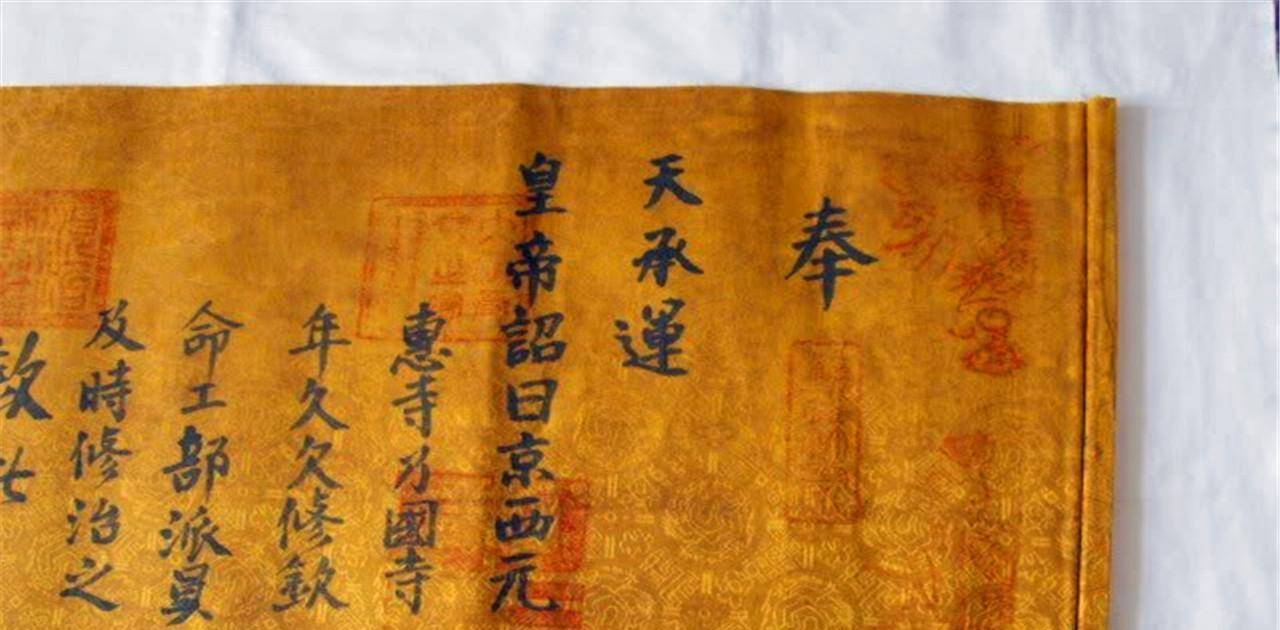 奉
天承運
皇帝詔曰京西元
惠寺乃國寺
年久欠修欽
命工部派員
及時修治之
欽此